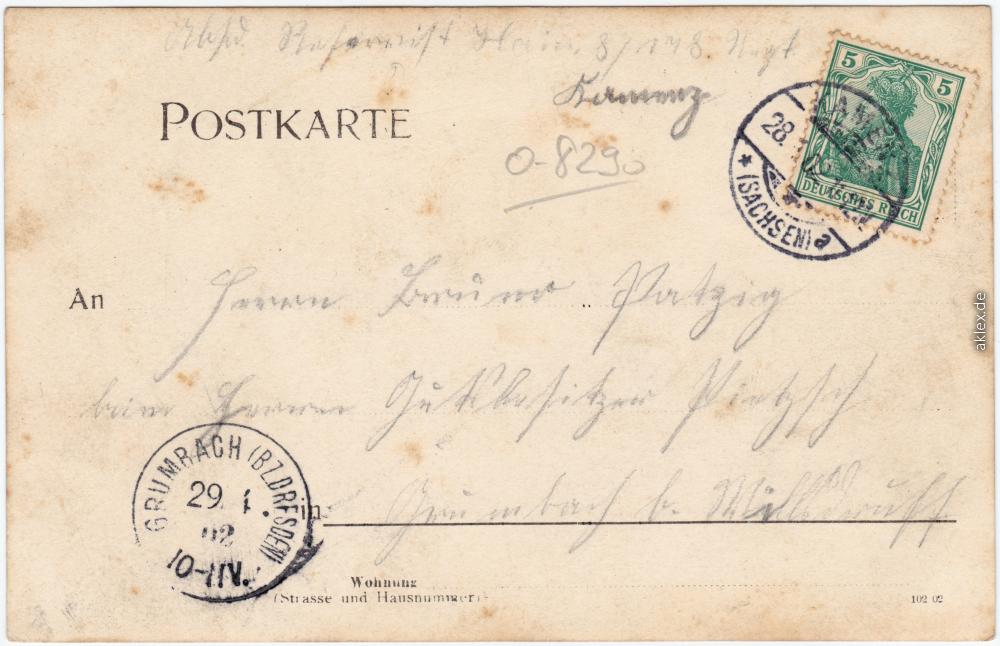 Absd. Reservist Hain 8/178 Regt
Kamenz
POSTKARTE
0-8290
5 5
DEUTSCHES REICH
28.
* (SACHSEN) e
An Herrn Bruno Patzig
beim Herrn Gutsbesitzer Pietzsch
in Grumbach b. Wilsdruff
GRUMBACH (BZ. DRESDEN)
29. 1.
02
10-11V.
Wohnung
(Strasse und Hausnummer)
102 02
aklex.de